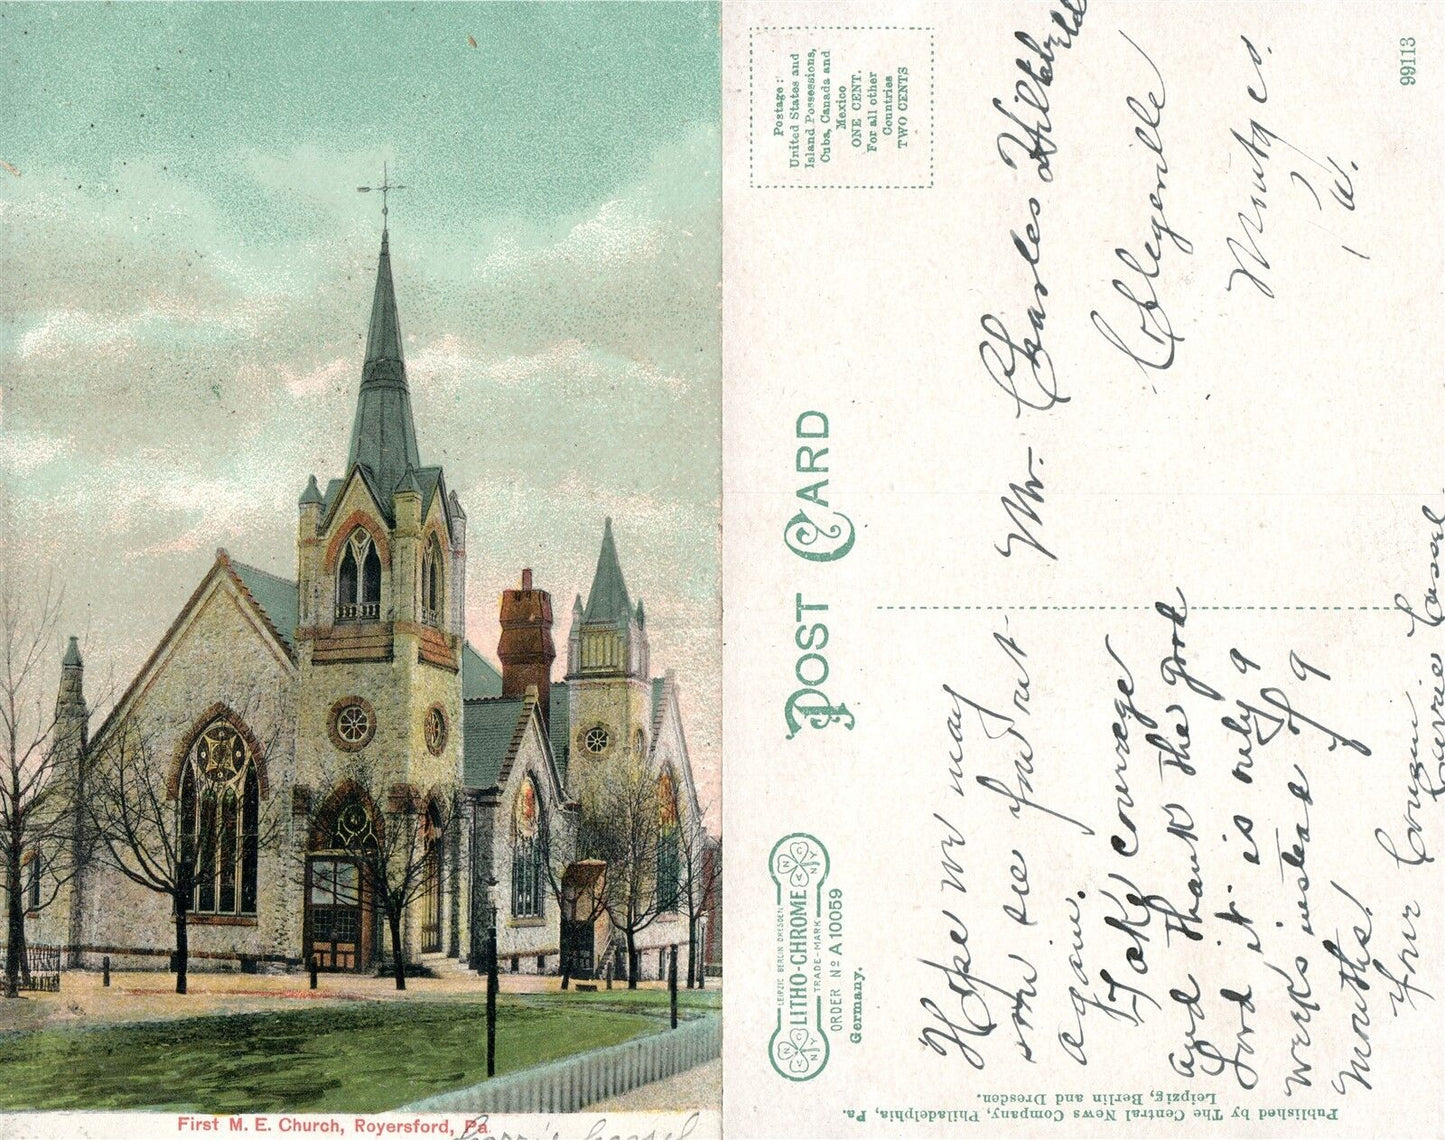 First M. E. Church, Royersford, Pa
Carrie Cassel
Postage:
United States and
Island Possessions,
Cuba, Canada and
Mexico
ONE CENT.
For all other
Countries
TWO CENTS
99113
POST CARD
LEIPZIG BERLIN DRESDEN
LITHO-CHROME
TRADE-MARK
N Y C
N Y C
ORDER No A 10059
Germany.
Published by The Central News Company, Philadelphia, Pa.
Leipzig, Berlin and Dresden.
Mr. Charles
Collegeville
Montg Co.
Pa.
Hope we may
soon see
again.
Take courage
and thank the good
Lord it is only 9
weeks instead of 9
months.
Your Cousin
Carrie Cassel.